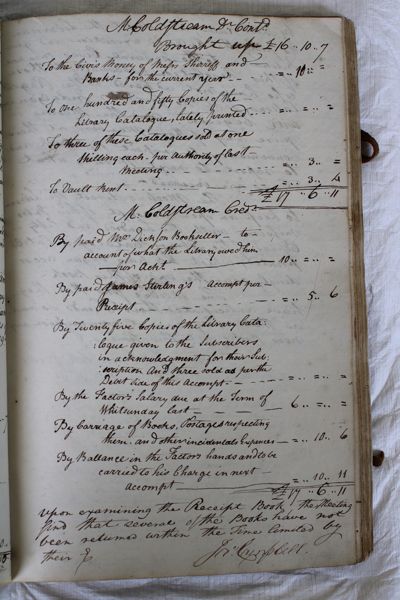 M. Coldstream Dr. Contd.
Brought up £16 .. 10 .. 7
To the Civis Money of Messrs Sheriff and
Banks - for the current year - - = .. 10 .. =
To one hundred and fifty Copies of the
Library Catalogue, lately printed - - - = .. = .. =
To three of these Catalogues sold at one
Shilling each per authority of last
Meeting - - - - = .. 3 .. =
To Vault Rent - - - = .. 3 .. 4
£17 .. 6 .. 11
M. Coldstream Credr.
By paid Mr. Dickson Bookseller - to -
account of what the Library owed him
- - 10 .. = .. =
By paid James Stirling's Accompt per
Receipt - - - - = .. 5 .. 6
By Twenty five Copies of the Library Cata:
:logue given to the Subscribers
in acknowledgment for their Sub:
:scription And three sold as per the
Debit side of this Accompt - - - = .. = .. =
By the Factor's Salary due at the Term of
Whitsunday last - - - 6 .. = .. =
By Carriage of Books, Postages respecting
them and other incidental Expences - = .. 10 .. 6
By Ballance in the Factor's hands and to be
carried to his Charge in next
accompt - - - = .. 10 .. 11
£17 .. 6 .. 11
Upon examining the Receipt Book, the Meeting
find that several of the Books have not
been returned within the Time limited by
their